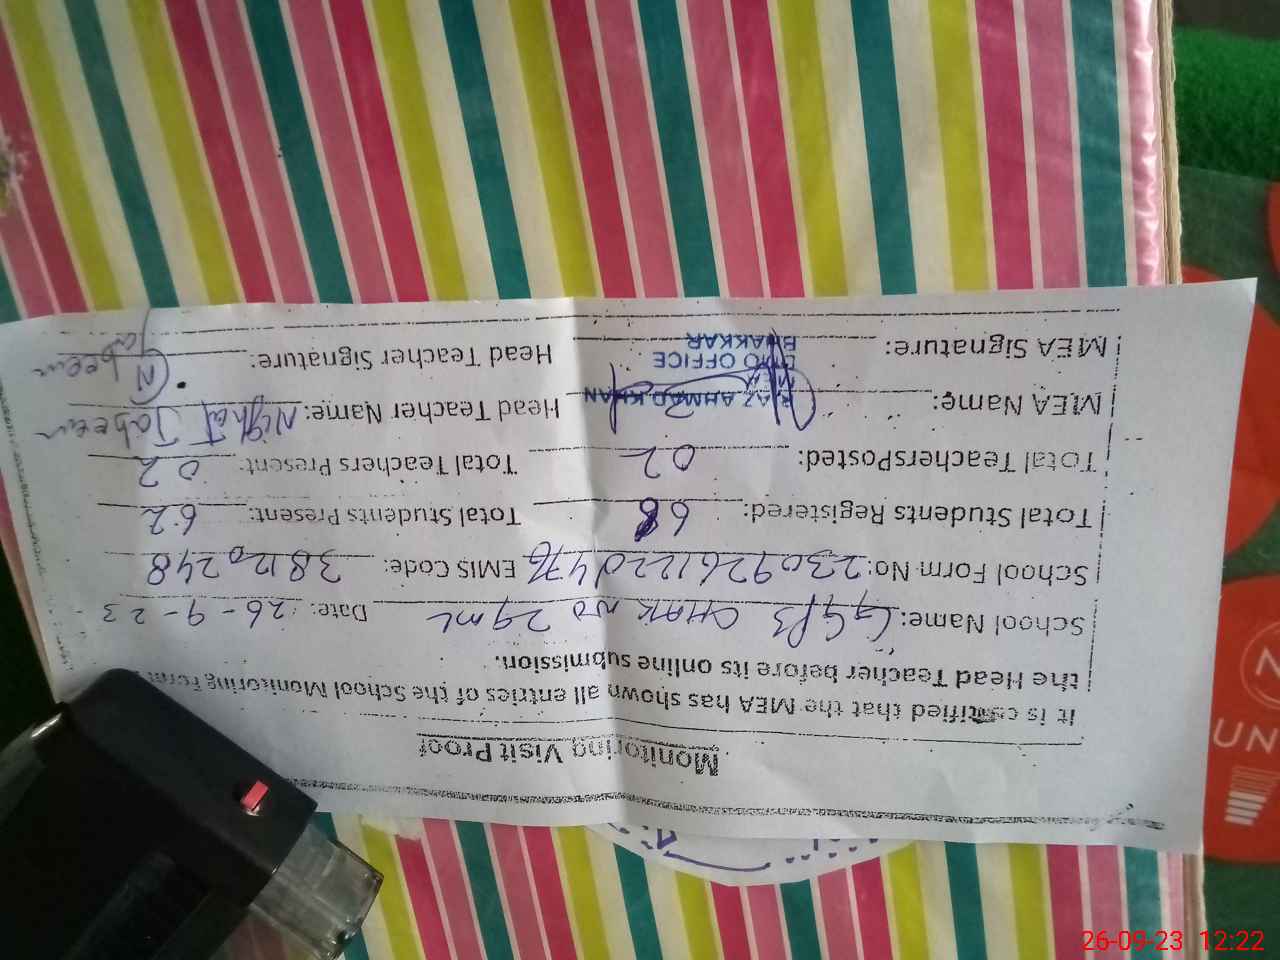 Monitoring Visit Proof
It is certified that the MEA has shown all entries of the School Monitoring Form
the Head Teacher before its online submission.
School Name: GGPS CHAK NO 29 ML Date: 26-9-23
School Form No: EMIS Code: 38120248
Total Students Registered: 68 Total Students Present: 62
Total TeachersPosted: 02 Total Teachers Present: 02
MEA Name: RIAZ AHMAD KHAN Head Teacher Name: Nighat Jabeen
MEA
OFFICE
MEA Signature: BHAKKAR Head Teacher Signature: N Jabeen
UN
N
26-09-23 12:22